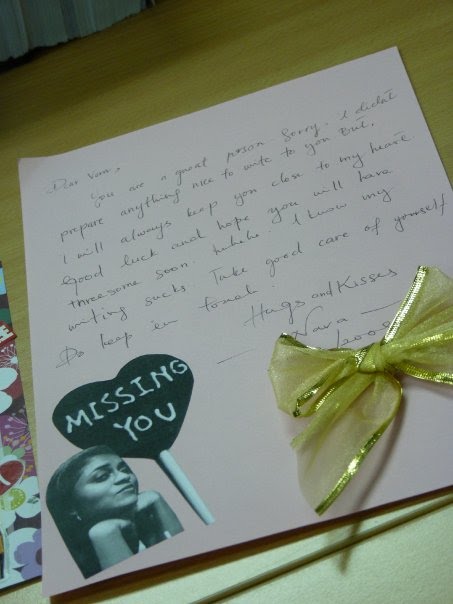 Dear Vam,
You are a great person Sorry. I didn't
prepare anything nice to write to you But,
I will always keep you close to my heart.
Good luck and hope you will have
threesome soon. Hehehe. I know my
writing sucks. Take good care of yourself
Do keep in touch.
Hugs and Kisses
Nava
MISSING
YOU